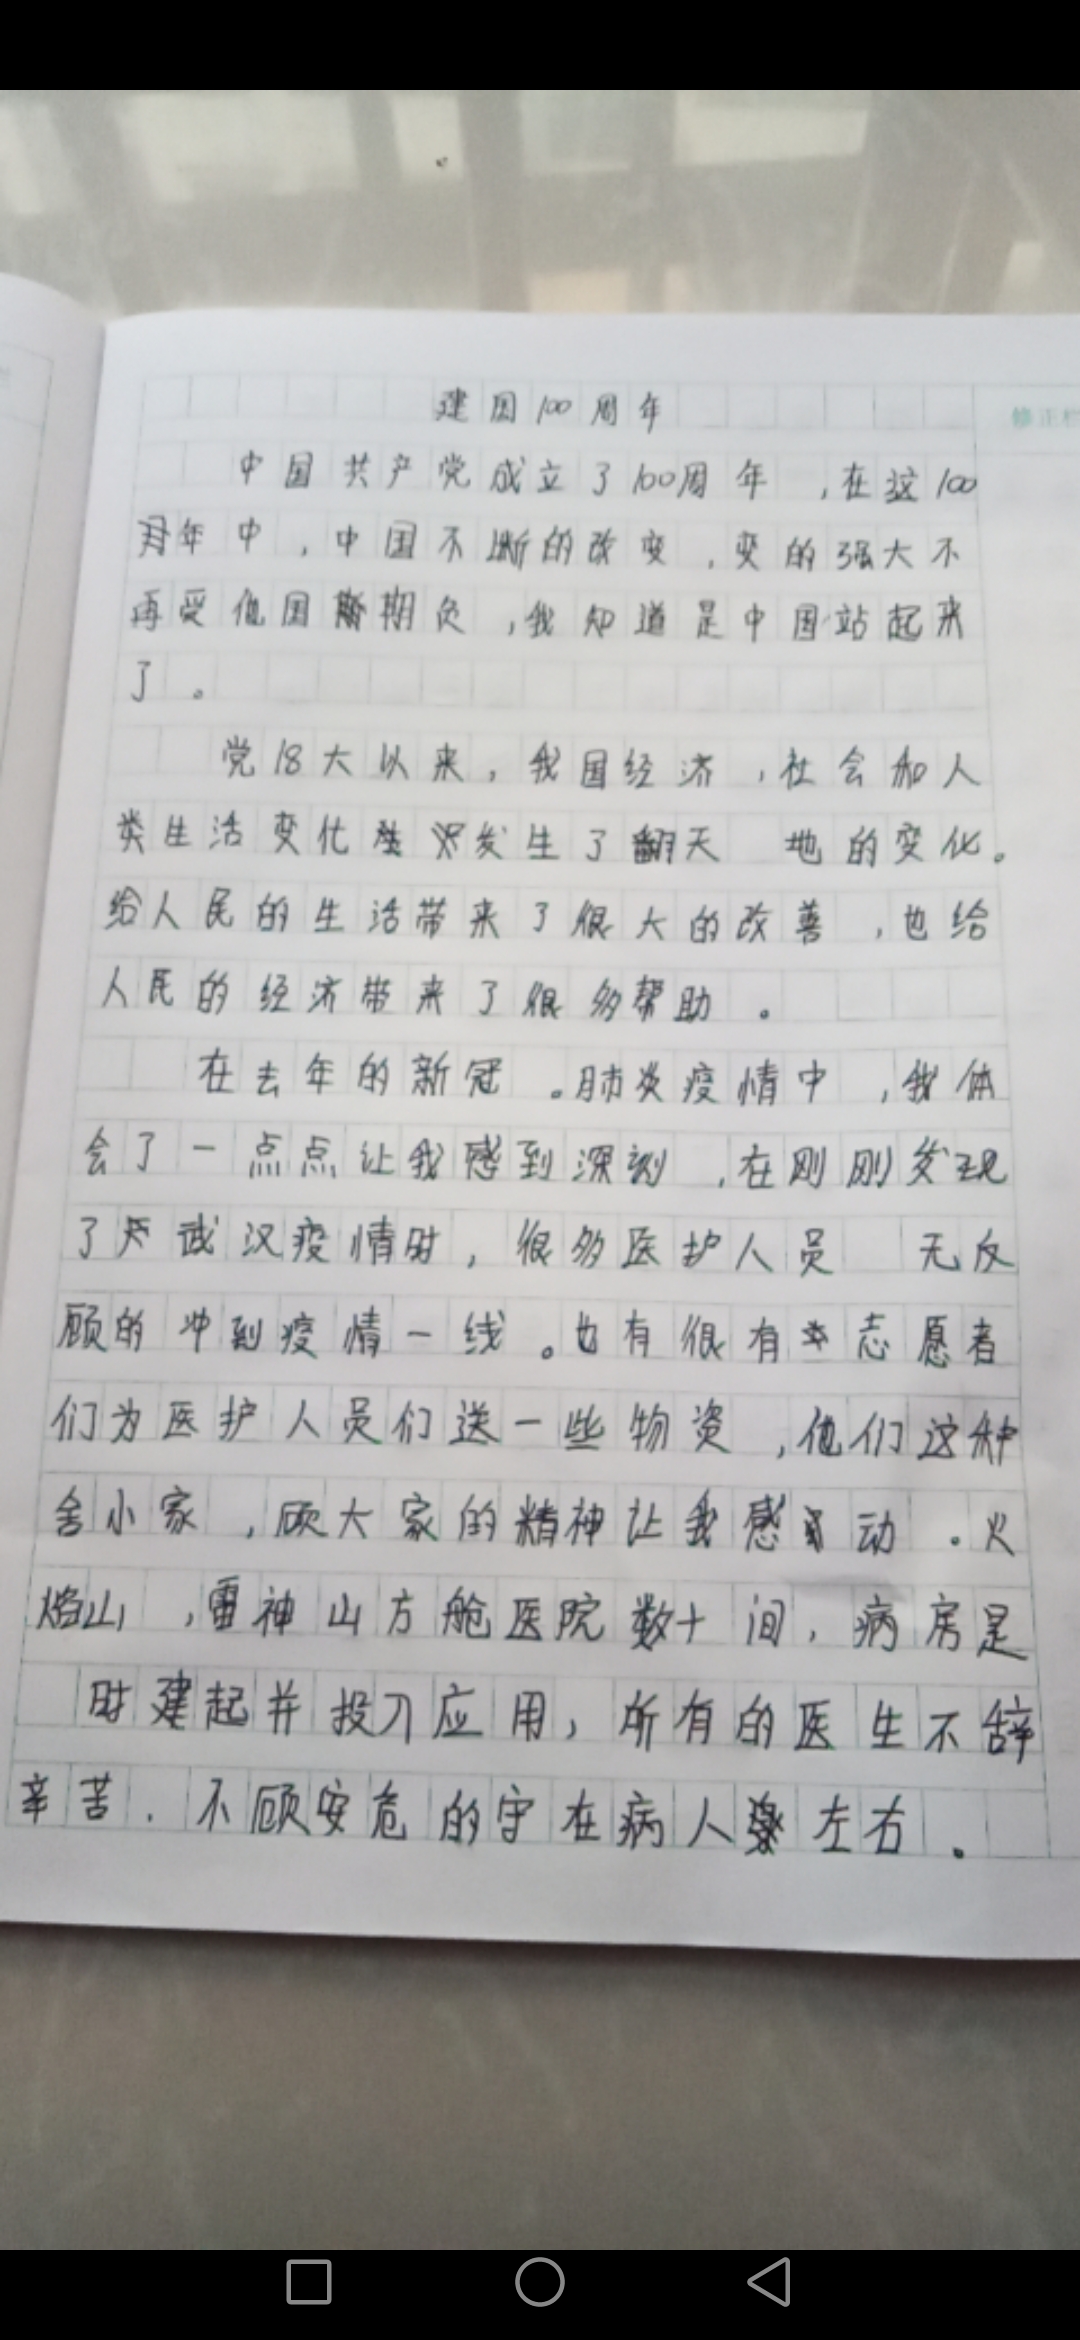 建国100周年
修正栏
中国共产党成立了100周年，在这100
年中，中国不断的改变，变的强大不
再受他国期负，我知道是中国站起来
了。
党18大以来，我国经济，社会和人
类生活变化发生了翻天地的变化。
给人民的生活带来了很大的改善，也给
人民的经济带来了很多帮助。
在去年的新冠。肺炎疫情中，我体
会了一点点让我感到深刻，在刚刚发现
了武汉疫情时，很多医护人员无反
顾的冲到疫情一线。也有很有志愿者
们为医护人员们送一些物资，他们这种
舍小家，顾大家的精神让我感动。火
焰山，雷神山方舱医院数十间，病房是
时建起并投入应用，所有的医生不辞
辛苦．不顾安危的守在病人左右。